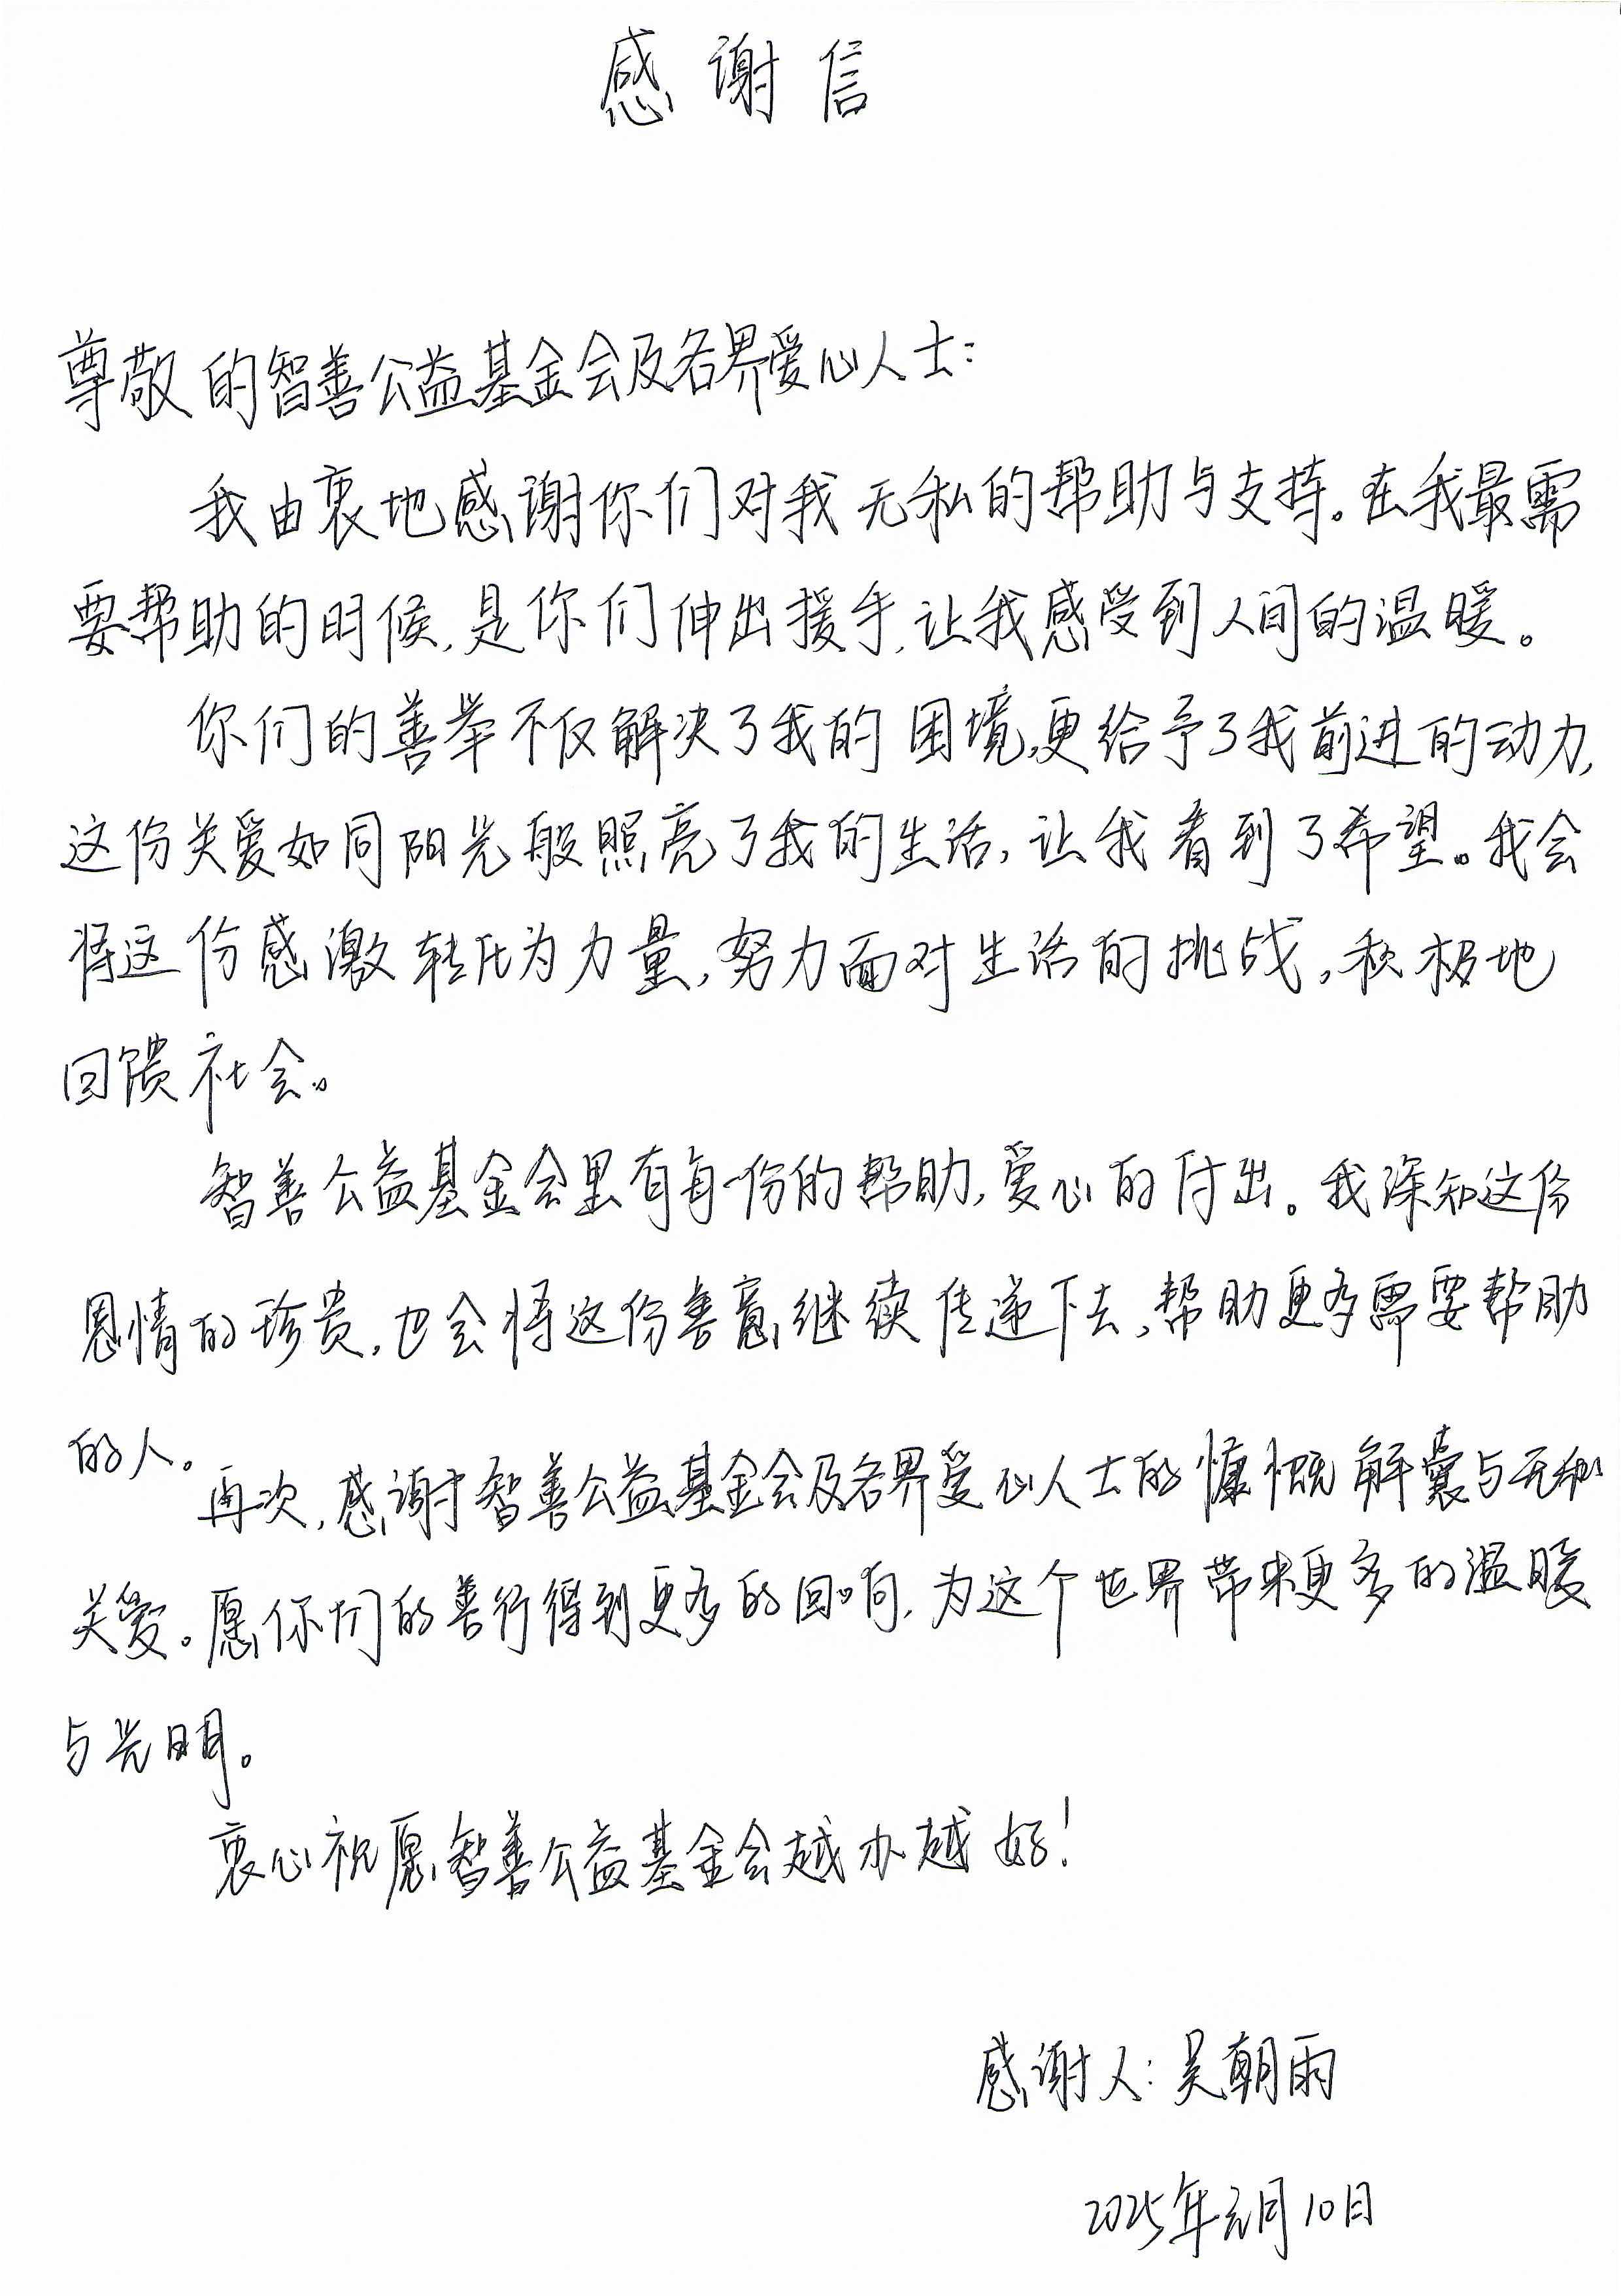 感谢信
尊敬的智善公益基金会及各界爱心人士:
我由衷地感谢你们对我无私的帮助与支持。在我最需
要帮助的时候,是你们伸出援手,让我感受到人间的温暖。
你们的善举不仅解决了我的困境,更给予了我前进的动力,
这份关爱如同阳光般照亮了我的生活,让我看到了希望。我会
将这份感激转化为力量,努力面对生活的挑战,积极地
回馈社会。
智善公益基金会里有每一份的帮助,爱心的付出。我深知这份
恩情的珍贵,也会将这份善意继续传递下去,帮助更多需要帮助
的人。
再次,感谢智善公益基金会及各界爱心人士的慷慨解囊与无私
关爱。愿你们的善行得到更多的回响,为这个世界带来更多的温暖
与光明。
衷心祝愿智善公益基金会越办越好!
感谢人:吴朝雨
2025年元月10日